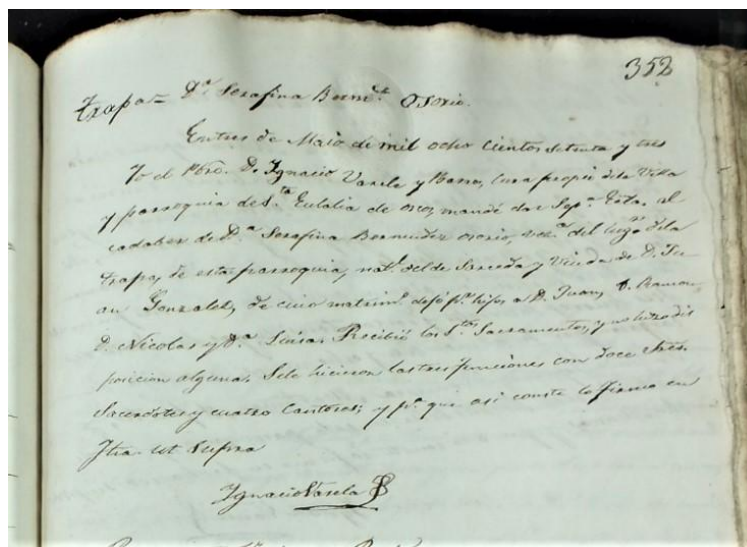 352
Trapa = D.ª Serafina Berm.ez Osorio.
En tres de Maio de mil ocho cientos setenta y tres
Yo el Pbro. D. Ignacio Varela y Barro, Cura propio dela Villa
y parroquia de S.ta Eulalia de Oscos, mandé dar Sep.ª Ecta. al
cadaber de D.ª Serafina Bermudez Osorio, vez.ª del lug.r dela
Trapa, de esta parroquia, nat.l del de Sarceda y Viuda de D. Ju-
an Gonzalez, de cuio matrim.o dejó p.r hijos a D. Juan, D. Ramon,
D. Nicolas y D.ª Luisa. Recibió los S.tos Sacramentos, y no hizo dis
posicion alguna. Sele hicieron las tres funciones con doce Sres.
Sacerdotes y cuatro Cantores; y p.ª que asi conste lo firmo en
fha. ut supra
Ignacio Varela B